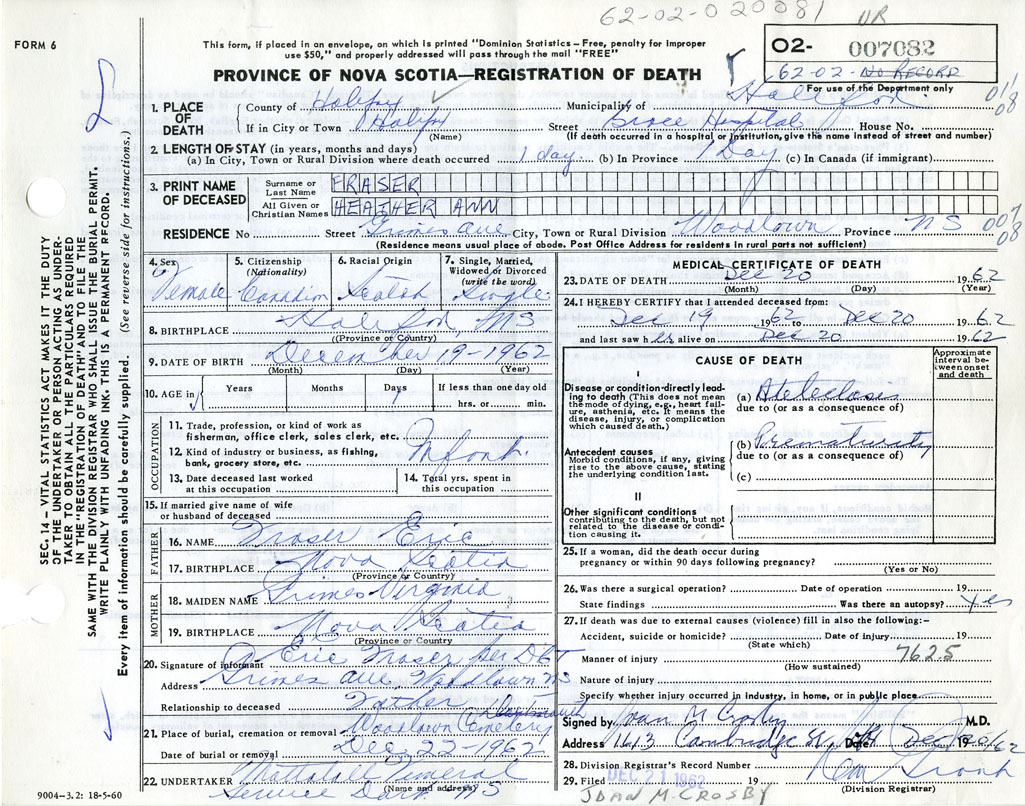 62-02-020081
UR
FORM 6
This form, if placed in an envelope, on which is printed "Dominion Statistics – Free, penalty for improper
use $50," and properly addressed will pass through the mail "FREE"
02- 007082
62-02- NO RECORD
For use of the Department only
PROVINCE OF NOVA SCOTIA—REGISTRATION OF DEATH
1. PLACE OF DEATH
County of Halifax Municipality of Halifax
If in City or Town Halifax Street Grace Hospital House No.
(Name) (If death occurred in a hospital or institution, give the name instead of street and number)
2. LENGTH OF STAY (in years, months and days)
(a) In City, Town or Rural Division where death occurred 1 day. (b) In Province 1 Day (c) In Canada (if immigrant)
3. PRINT NAME OF DECEASED
Surname or Last Name FRASER
All Given or Christian Names HEATHER ANN
RESIDENCE No Street Grimes ave City, Town or Rural Division Woodlawn Province NS
(Residence means usual place of abode. Post Office Address for residents in rural parts not sufficient)
4. Sex Female
5. Citizenship (Nationality) Canadian
6. Racial Origin Scotch
7. Single, Married, Widowed or Divorced (write the word) Single
8. BIRTHPLACE Halifax, NS
(Province or Country)
9. DATE OF BIRTH December 19-1962
(Month) (Day) (Year)
10. AGE in Years Months Days If less than one day old
hrs. or min.
OCCUPATION
11. Trade, profession, or kind of work as
fisherman, office clerk, sales clerk, etc.
12. Kind of industry or business, as fishing,
bank, grocery store, etc.
Infant.
13. Date deceased last worked
at this occupation
14. Total yrs. spent in
this occupation
15. If married give name of wife
or husband of deceased
FATHER
16. NAME Fraser Eric
17. BIRTHPLACE Nova Scotia
(Province or Country)
MOTHER
18. MAIDEN NAME Grimes Virginia
19. BIRTHPLACE Nova Scotia
(Province or Country)
20. Signature of informant Eric Fraser per
Address Grimes ave, Woodlawn NS
Relationship to deceased Father
Dartmouth
21. Place of burial, cremation or removal Woodlawn Cemetery
Date of burial or removal Dec 22-1962
22. UNDERTAKER Mattatall Funeral
(Name and address)
Service Dart NS
9004-3.2: 18-5-60
MEDICAL CERTIFICATE OF DEATH
23. DATE OF DEATH Dec 20 1962
(Month) (Day) (Year)
24. I HEREBY CERTIFY that I attended deceased from:
Dec 19 1962 to Dec 20 1962
and last saw her alive on Dec 20 1962
CAUSE OF DEATH
Approximate interval between onset and death
I
Disease or condition directly leading to death (This does not mean the mode of dying, e.g., heart failure, asthenia, etc. It means the disease, injury, or complication which caused death.)
(a) Atelectasis
due to (or as a consequence of)
Antecedent causes
Morbid conditions, if any, giving rise to the above cause, stating the underlying condition last.
(b) Prematurity
due to (or as a consequence of)
(c)
II
Other significant conditions
contributing to the death, but not related to the disease or condition causing it.
25. If a woman, did the death occur during
pregnancy or within 90 days following pregnancy?
(Yes or No)
26. Was there a surgical operation? Date of operation 19
State findings Was there an autopsy? Yes
27. If death was due to external causes (violence) fill in also the following:-
Accident, suicide or homicide? Date of injury 19
(State which)
762.5
Manner of injury
(How sustained)
Nature of injury
Specify whether injury occurred in industry, in home, or in public place
Signed by Joan M Crosby M.D.
Address 1613 Cambridge St, Date Dec 20 1962
28. Division Registrar's Record Number
29. Filed DEC 21 1962 19
(Division Registrar)
JOAN M. CROSBY
SEC. 14 – VITAL STATISTICS ACT MAKES IT THE DUTY
OF THE UNDERTAKER OR PERSON ACTING AS UNDER-
TAKER TO OBTAIN ALL THE PARTICULARS REQUIRED
IN THE "REGISTRATION OF DEATH" AND TO FILE THE
SAME WITH THE DIVISION REGISTRAR WHO SHALL ISSUE THE BURIAL PERMIT.
WRITE PLAINLY WITH UNFADING INK. THIS IS A PERMANENT RECORD.
Every item of information should be carefully supplied. (See reverse side for instructions.)